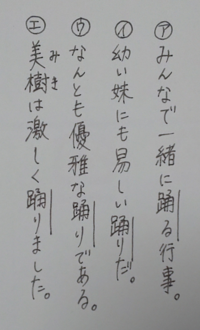 ㋐みんなで一緒に踊る行事。
㋑幼い妹にも易しい踊りだ。
㋒なんとも優雅な踊りである。
㋓美樹は激しく踊りました。
みき